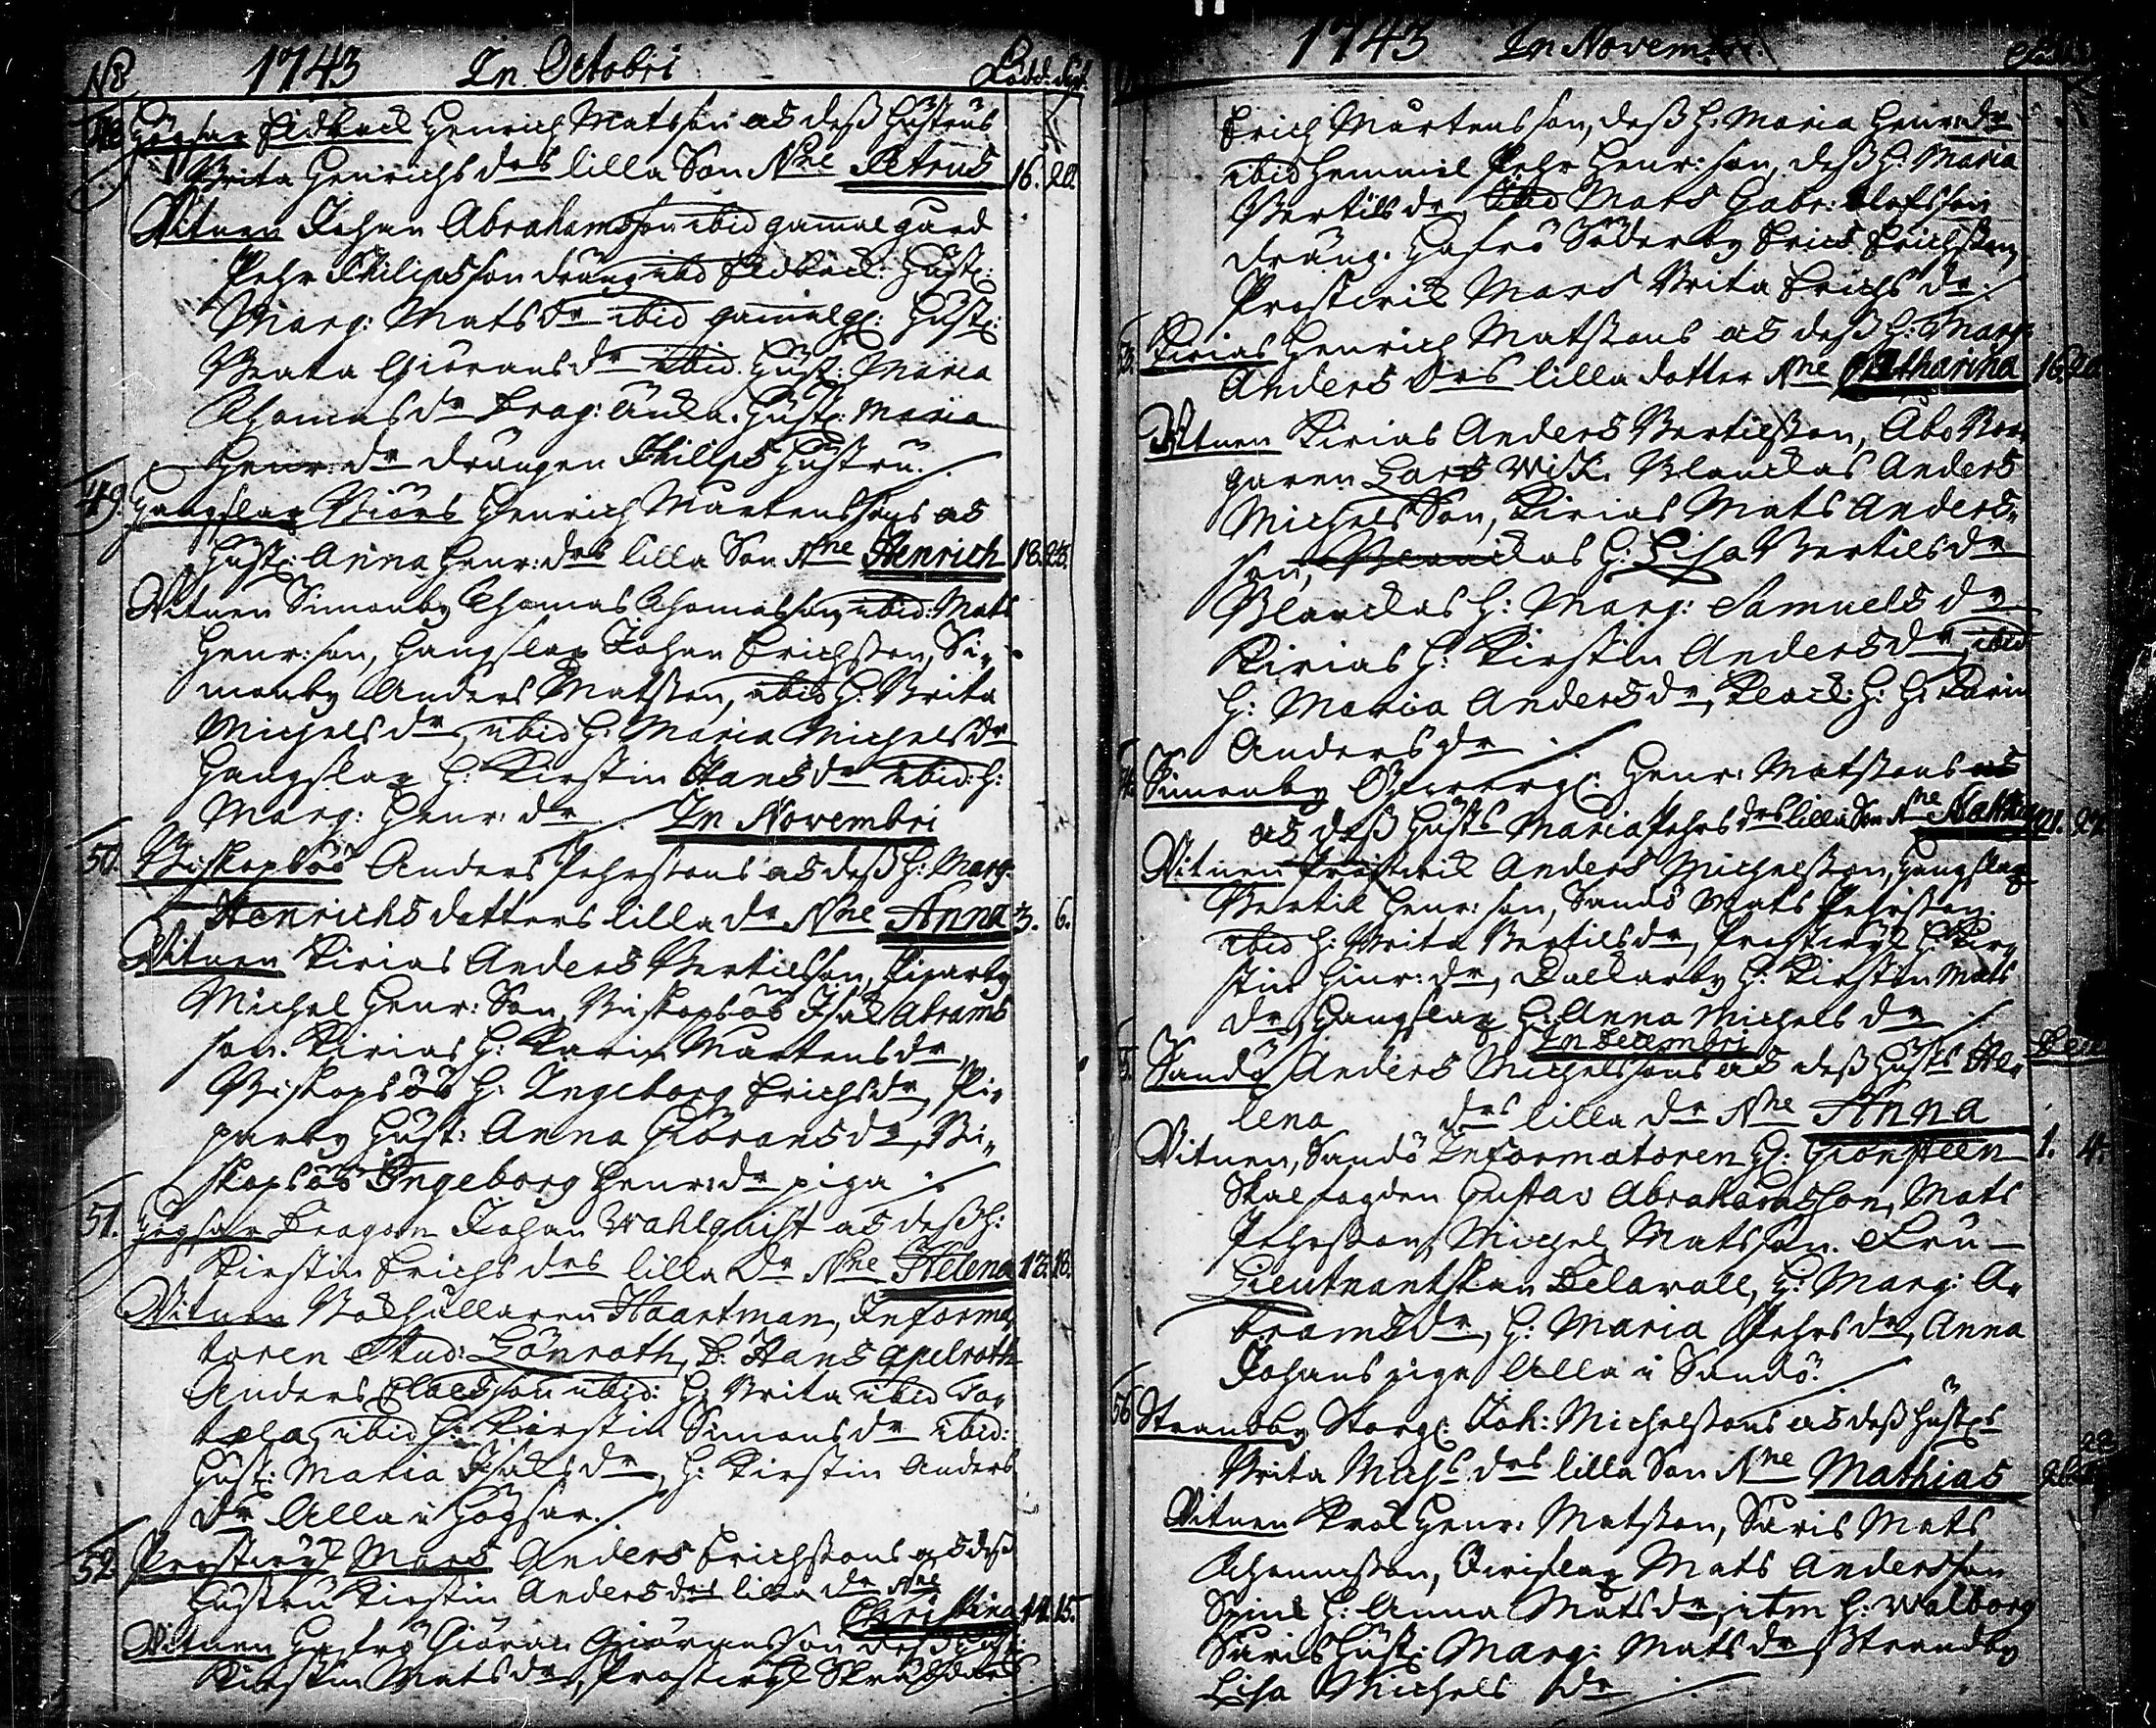 No 1743 In Octobri Född: döpt.
48 Högsar Eidback Henrich Matsson as deß Hustrus
Brita Henrichs drs lilla Son Nne Petrus 16. 20.
Vitnen Johan Abrahamsson ibid gammalgård
Pehr Philipsson dräng ibid Eidback: Hust:
Marg: Mats dr ibid gammelg: Hust:
Beata Giörans dr ibid. Hust: Maria
Thomas dr Hust: Maria
Henr: dr drängen Philips Hustru.
49. Hangslax Biörs Henrich Mårtenssons as
Hust: Anna Henr: drs lilla Son Nne Henrich 18. 23.
Vitnen Simonby Thomas Thomasson, ibid: Mats
Henr: son, Hangslax Johan Erichsson, Si-
monby Anders Matsson, ibid H: Brita
Michels dr, ibid H: Maria Michels dr
Hangslax H: Kirstin Hans dr ibid: H:
Marg: Henr: dr
In Novembri
50. Biskopsöö Anders Pehrssons as deß H: Marg:
Henrichs dotters lilla dr Nne Anna 3. 6.
Vitnen Kirias Anders Bertilsson, Piparby
Michel Henr: Son, Biskopsöö Isac Abrams
son. Kirias H: Karin Mårtens dr,
Biskopsöö H: Ingeborg Erichs dr, Pi-
parby Hust: Anna Giörans dr, Bi-
skopsöö Ingeborg Henr: dr piga
51. Högsar Dragon Johan Wahlquist as deß H:
Kirstin Erichs drs lilla Dr Nne Helena 13. 18.
Vitnen Bokhållaren Haartman, Informa-
toren Stud: Lönroth, D. Hans Apelroth
Anders Claesson ibid: H: Brita ibid
ibid H: Kirstin Simons dr ibid:
Hust: Maria Isacs dr, H: Kirstin Anders
dr Alla i Högsar.
52. Prostvijk Mars Anders Erichssons as deß
Hustru Kirstin Anders drs lilla dr Nne
Christina 14. 15.
Vitnen Giöran Giöransson deß Hust:
Kirstin Mats dr, Prostvijk
1743 In Novembri
Erich Mårtensson, deß H: Maria Henr: dr
ibid Hemmic Pehr Henr: son, deß H: Maria
Bertils dr, ibid Mats Gabr: Olofsson
dräng. Hafrö Söderby Erics Erichsson,
Prostvik Mars Brita Erichs dr.
53. Kirias Henrich Matssons as deß H: Marg:
Anders drs lilla dotter Nne Catharina 16. 20
Vitnen Kirias Anders Bertilsson, Åbo Bor-
garen Lars Wisk. Blanckas Anders
Michels Son, Kirias Mats Anders-
son, Blanckas H: Lisa Bertils dr
Blanckas H: Marg: Samuels dr
Kirias H: Kirstin Anders dr, ibid
H: Maria Anders dr, H: Karin
Anders dr
54. Simonby Öfverg: Henr: Matssons as
as deß Hustrs Maria Pehrs drs lilla Son Nne 21. 27.
Vitnen Prostvik Anders Michelsson, Hangslax
Bertil Henr: son, Sandö Mats Pehrsson.
ibid H: Brita Bertils dr, Prostvijk H: Kir-
stin Hinr: dr, Dallarby H: Kirstin Mats
dr, Hangslax H: Anna Michels dr
In Decembri
55. Sandö Anders Michelssons as deß Hustrs He-
lena drs lilla dr Nne Anna
Vitnen, Sandö Informatoren H: Grönsteen 1. 4.
Skalfogden Gustav Abrahamsson, Mats
Pehrsson, Michel Matsson. Fru
Lieutnantskan Delavall, H: Marg: A-
brams dr, H: Maria Pehrs dr, Anna
Johans piga Alla i Sandö.
56 Strandby Storg: Joh: Michelssons as deß Hustrs
Brita Michs drs lilla Son Nne Mathias
Vitnen Henr: Matsson, Saris Mats
Thomasson, Qvislax Mats Andersson
H: Anna Mats dr, item H: Walborg
Saris Hust: Marg: Mats dr, Strandby
Lisa Michels dr